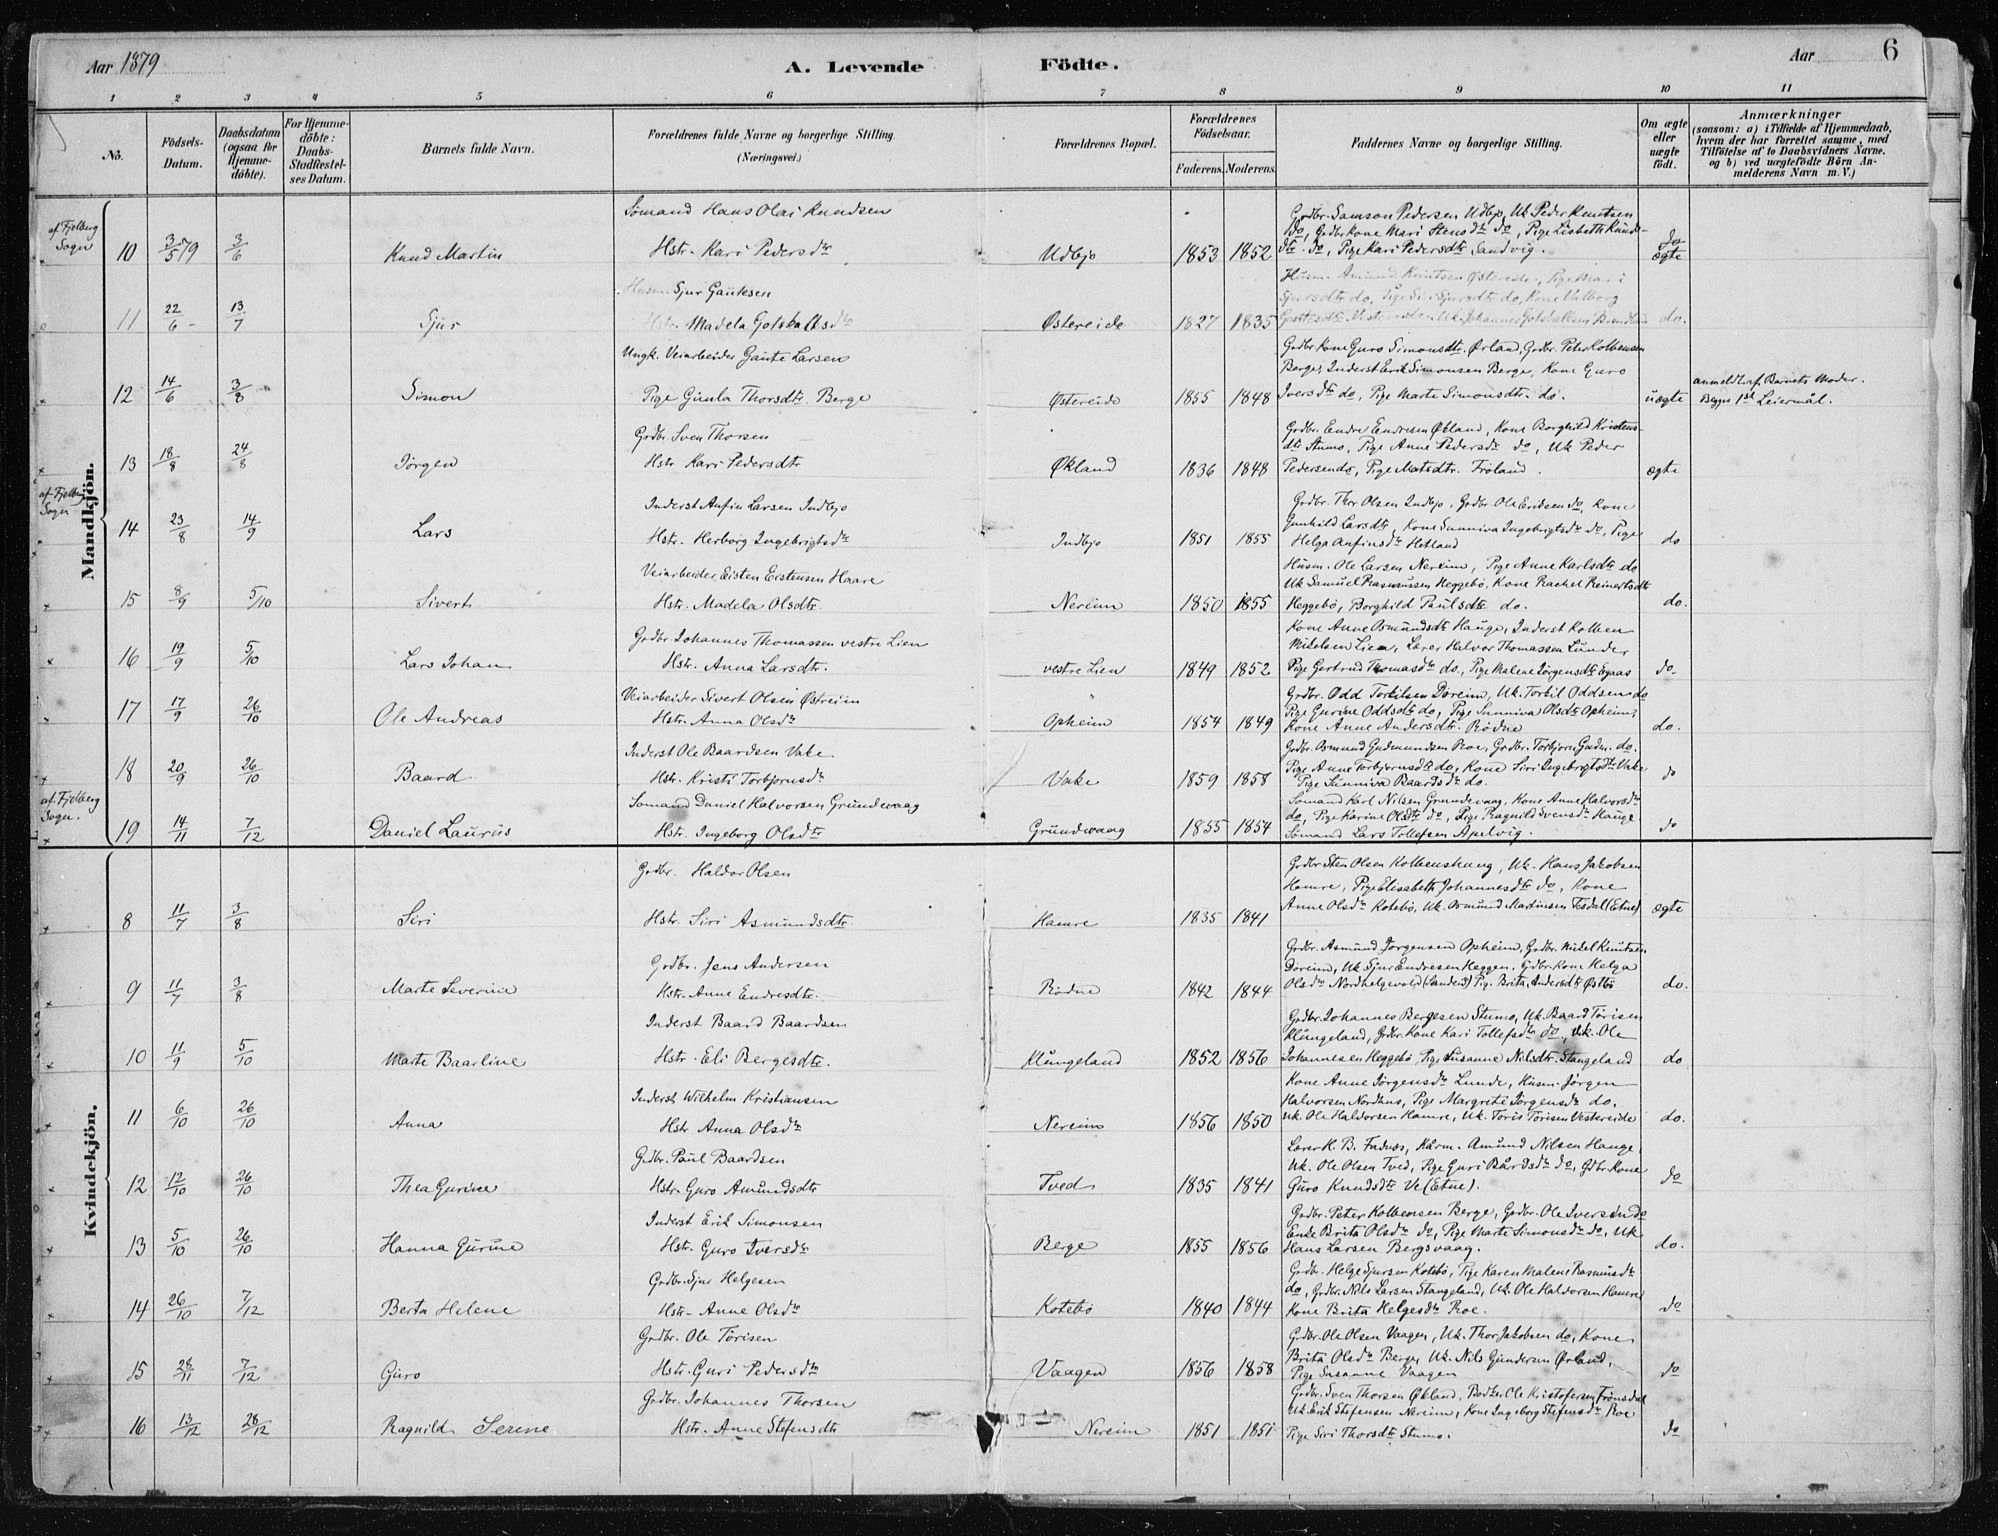 Aar 1879
A. Levende Födte.
Aar
6
1 2 3 4 5 6 7 8 9 10 11
No.
Födsels-Datum.
Daabsdatum (ogsaa for Hjemme-döbte).
For Hjemme-döbte: Daabs-Stadfæstel-ses Datum.
Barnets fulde Navn.
Forældrenes fulde Navne og borgerlige Stilling. (Næringsvei.)
Forældrenes Bopæl.
Forældrenes Födselsaar.
Faderens. Moderens.
Faddernes Navne og borgerlige Stilling.
Om ægte eller uægte födt.
Anmærkninger
(saasom: a) i Tilfælde af Hjemmedaab, hvem der har forrettet samme, med Tilföielse af to Daabsvidners Navne, og b) ved uægtefödte Börn Anmelderens Navn m. V.)
Mandkjön.
af Fjelberg Sogn
Sømand Hans Olai Knudsen
Grdbr. Samson Pedersen Udbjo, Uk. Peder Knutsen
do, Grdbr. Kone Mari Stensdtr do, Pige Lisbeth Knuds-
10 3/5 79 3/6 Knud Martin Hstr. Kari Pedersdtr Udbjo 1853 1852 dtr. do, Pige Kari Pedersdtr Sandvig. do ægte
Husm. Sjur Gautesen
Husm. Amund Knutsen Østereide, Pige Mari
Sjursdtr do, Pige Siri Sjursdtr do, Kone Valborg
11 22/6 - 13/7 Sjur Hstr. Madela Gotskalksdtr Østereide 1827 1835 do.
Ungk. Veiarbeider Gaute Larsen
Grdbr Kone Guro Simonsdtr. Ørland, Grdbr. Peter Kolbensen
Berge, Inderst Erik Simonsen Berge, Kone Guro
12 14/6 3/8 Simon Pige Gunla Thorsdtr. Berge Østereide 1855 1848 Iversdtr do, Pige Marte Simonsdtr. do. uægte anmeldt af Barnets Moder.
Begges 1ste Leiermål.
Grdbr. Sven Thorsen
Grdbr. Endre Endresen Økland, Kone Borghild Kristens-
dtr Stumo, Pige Anne Pedersdtr do, Uk Peder
13 18/8 24/8 Jørgen Hstr Kari Pedersdtr Økland 1836 1848 Pedersen do, Pige Matsdtr. Frøland. ægte
af Fjelberg Sogn
Inderst Anfin Larsen Indbjo
Grdbr. Thor Olsen Indbjo, Grdbr. Ole Eriksen do, Kone
Gunhild Larsdtr, Kone Sunniva Ingebrigtsdtr do, Pige
14 23/8 14/9 Lars Hstr. Herborg Ingebrigtsdtr Indbjo 1851 1855 Helga Anfinsdtr Hetland do
Veiarbeider Eisten Eistensen Haare
Husm. Ole Larsen Nereim, Pige Anne Karlsdtr do
Uk Samuel Rasmussen Heggebö, Kone Rachel Reinertsdtr
15 8/9 5/10 Sivert Hstr. Madela Olsdtr. Nereim 1850 1855 Heggebö, Borghild Paulsdtr do. do.
Grdbr. Johannes Thomassen vestre Lien
Kone Anne Osmundsdtr Hauge, Inderst Kolben
Mikelsen Lien, Lærer Halvor Thomassen Lunder
16 19/9 5/10 Lars Johan Hstr. Anna Larsdtr. vestre Lien 1849 1852 Pige Gertrud Thomasdtr do, Pige Malene Jørgensdtr Egaas do.
Veiarbeider Sivert Olsen Østreim
Grdbr. Odd Torkilsen Døreim, Uk. Torkil Oddsen do
Pige Gurine Oddsdtr do, Pige Sunniva Olsdtr Opheim,
17 17/9 26/10 Ole Andreas Hstr. Anna Olsdtr Opheim 1854 1849 Kone Anne Andersdtr. Rödne do.
Inderst Ole Baardsen Vake
Grdbr. Osmund Gudmundsen Roe, Grdbr. Torbjørn Gudm. do.
Pige Anne Torbjørnsdtr do, Kone Siri Ingebrigtsdtr Vake
18 20/9 26/10 Baard Hstr. Kristi Torbjørnsdtr Vake 1859 1858 Pige Sunniva Baardsdtr do. do
af Fjelberg Sogn.
Sømand Daniel Halvorsen Grundevaag
Sømand Karl Nilsen Grundevaag, Kone Anne Halvorsdtr
do, Pige Karine Olsdtr do, Pige Ragnild Svensdtr Hauge
19 14/11 7/12 Daniel Laurus Hstr. Ingeborg Olsdtr Grundevaag 1855 1854 Sømand Lars Tollefsen Apelvig. do
Kvindekjön.
Grdbr. Haldor Olsen
Grdbr Sten Olsen Kolbenshaug, Uk. Hans Jakobsen
Hamre, Pige Elisabeth Johannesdtr do, Kone
8 11/7 3/8 Siri Hstr. Siri Asmundsdtr. Hamre 1835 1841 Anne Olsdtr Kotebö, Uk. Osmund Martinsen Tesdal (Etne) ægte
Grdbr. Jens Andersen
Grdbr. Asmund Jørgensen Opheim, Grdbr. Mikel Knutsen
Döreim, Uk. Sjur Endresen Heggen, Grdbr. Kone Helga
9 11/7 3/8 Marte Severine Hstr. Anne Endresdtr. Rödne 1842 1844 Olsdtr Nordhelgevold (Sandeid) Pig. Brita Andersdtr Østbö do.
Inderst Baard Baardsen
Grdbr. Johannes Bergesen Stumo, Uk. Baard Tørisen
Klungeland, Grdbr. Kone Kari Tollefsdtr do, Uk. Ole
10 11/9 5/10 Marte Baarline Hstr. Eli Bergesdtr. Klungeland 1852 1856 Johannesen Heggebö, Pige Susanne Nilsdtr. Stangeland do
Inderst Wilhelm Kristiansen
Kone Anne Jørgensdtr Lunde, Husm. Jørgen
Halvorsen Nordhus, Pige Margrete Jørgensdtr do.
11 6/10 26/10 Anna Hstr Anna Olsdtr Nereim 1856 1850 Uk. Ole Haldorsen Hamre, Uk. Töris Törisen Vestereide do.
Grdbr. Paul Baardsen
Lærer K. B. Fadnæs, Kårm. Amund Nilsen Hauge,
Uk. Ole Olsen Tved, Pige Guri Bårdsdtr do, Gdbr. Kone
12 12/10 26/10 Thea Gurine Hstr. Guro Amundsdtr Tved 1835 1841 Guro Knudsdtr Ve (Etne). do
Inderst Erik Simonsen
Grdbr. Peter Kolbensen Berge, Grdbr. Ole Iversen do
Enke Brita Olsdtr do, Pige Marte Simonsdtr do, Uk
13 5/10 26/10 Hanna Gurine Hstr. Guro Iversdtr Berge 1855 1856 Hans Larsen Bergsvaag. do.
Grdbr. Sjur Helgesen
Grdbr. Helge Sjursen Kotebö, Pige Karen Malene Rasmusdtr
do, Grdbr. Nils Larsen Stangeland, Uk. Ole Haldorsen Hamre
14 26/10 7/12 Berta Helene Hstr. Anne Olsdtr Kotebö 1840 1844 Kone Brita Helgesdtr Roe. do
Grdbr. Ole Törisen
Grdbr. Ole Olsen Vaagen, Uk. Thor Jakobsen do, Kone
Brita Olsdtr Berge, Uk. Nils Gundersen Ørland,
15 28/11 7/12 Guro Hstr. Guri Pedersdtr Vaagen 1856 1858 Pige Susanne Vaagen do
Grdbr. Johannes Thorsen
Grdbr. Sven Thorsen Økland, Bødker Ole Kristofersen Frønsdal
Uk. Erik Stefensen Nereim, Kone Ingeborg Stefensdtr Roe
16 13/12 28/12 Ragnild Serine Hstr. Anne Stefensdtr Nereim 1851 1851 Pige Siri Thorsdtr Stumo. do